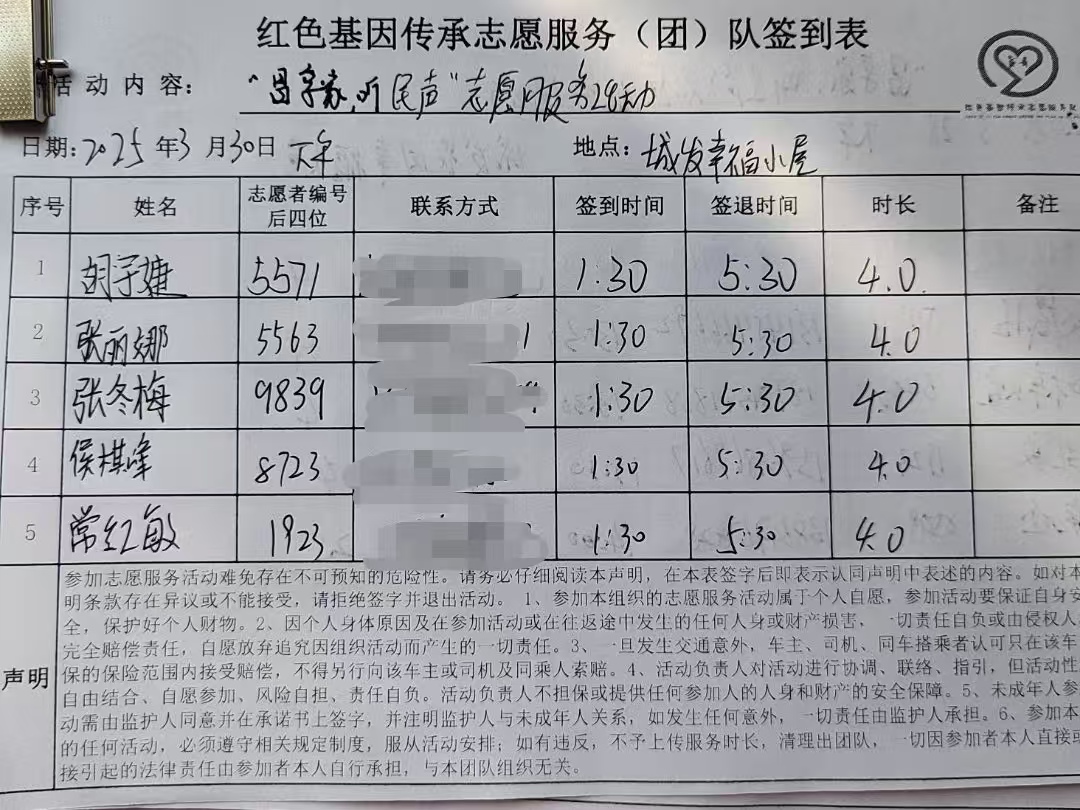 红色基因传承志愿服务（团）队签到表
活动内容：“昌字家，听民声”志愿服务活动
日期:2025年3月30日下午 地点:城发幸福小屋
序号 姓名 志愿者编号后四位 联系方式 签到时间 签退时间 时长 备注
1 胡子婕 5571 1:30 5:30 4.0
2 张丽娜 5563 1 1:30 5:30 4.0
3 张冬梅 9839 1:30 5:30 4.0
4 侯棋峰 8723 1:30 5:30 4.0
5 常红敏 1923 1:30 5:30 4.0
声明
参加志愿服务活动难免存在不可预知的危险性。请务必仔细阅读本声明，在本表签字后即表示认同声明中表述的内容。如对本
明条款存在异议或不能接受，请拒绝签字并退出活动。 1、参加本组织的志愿服务活动属于个人自愿，参加活动要保证自身安
全，保护好个人财物。2、因个人身体原因及在参加活动或在往返途中发生的任何人身或财产损害，一切责任自负或由侵权人
完全赔偿责任，自愿放弃追究因组织活动而产生的一切责任。3、一旦发生交通意外，车主、司机、同车搭乘者认可只在该车
保的保险范围内接受赔偿，不得另行向该车主或司机及同乘人索赔。4、活动负责人对活动进行协调、联络、指引，但活动性
自由结合、自愿参加、风险自担、责任自负。活动负责人不担保或提供任何参加人的人身和财产的安全保障。5、未成年人参
动需由监护人同意并在承诺书上签字，并注明监护人与未成年人关系，如发生任何意外，一切责任由监护人承担。6、参加本
的任何活动，必须遵守相关规定制度，服从活动安排；如有违反，不予上传服务时长，清理出团队，一切因参加者本人直接或
接引起的法律责任由参加者本人自行承担，与本团队组织无关。